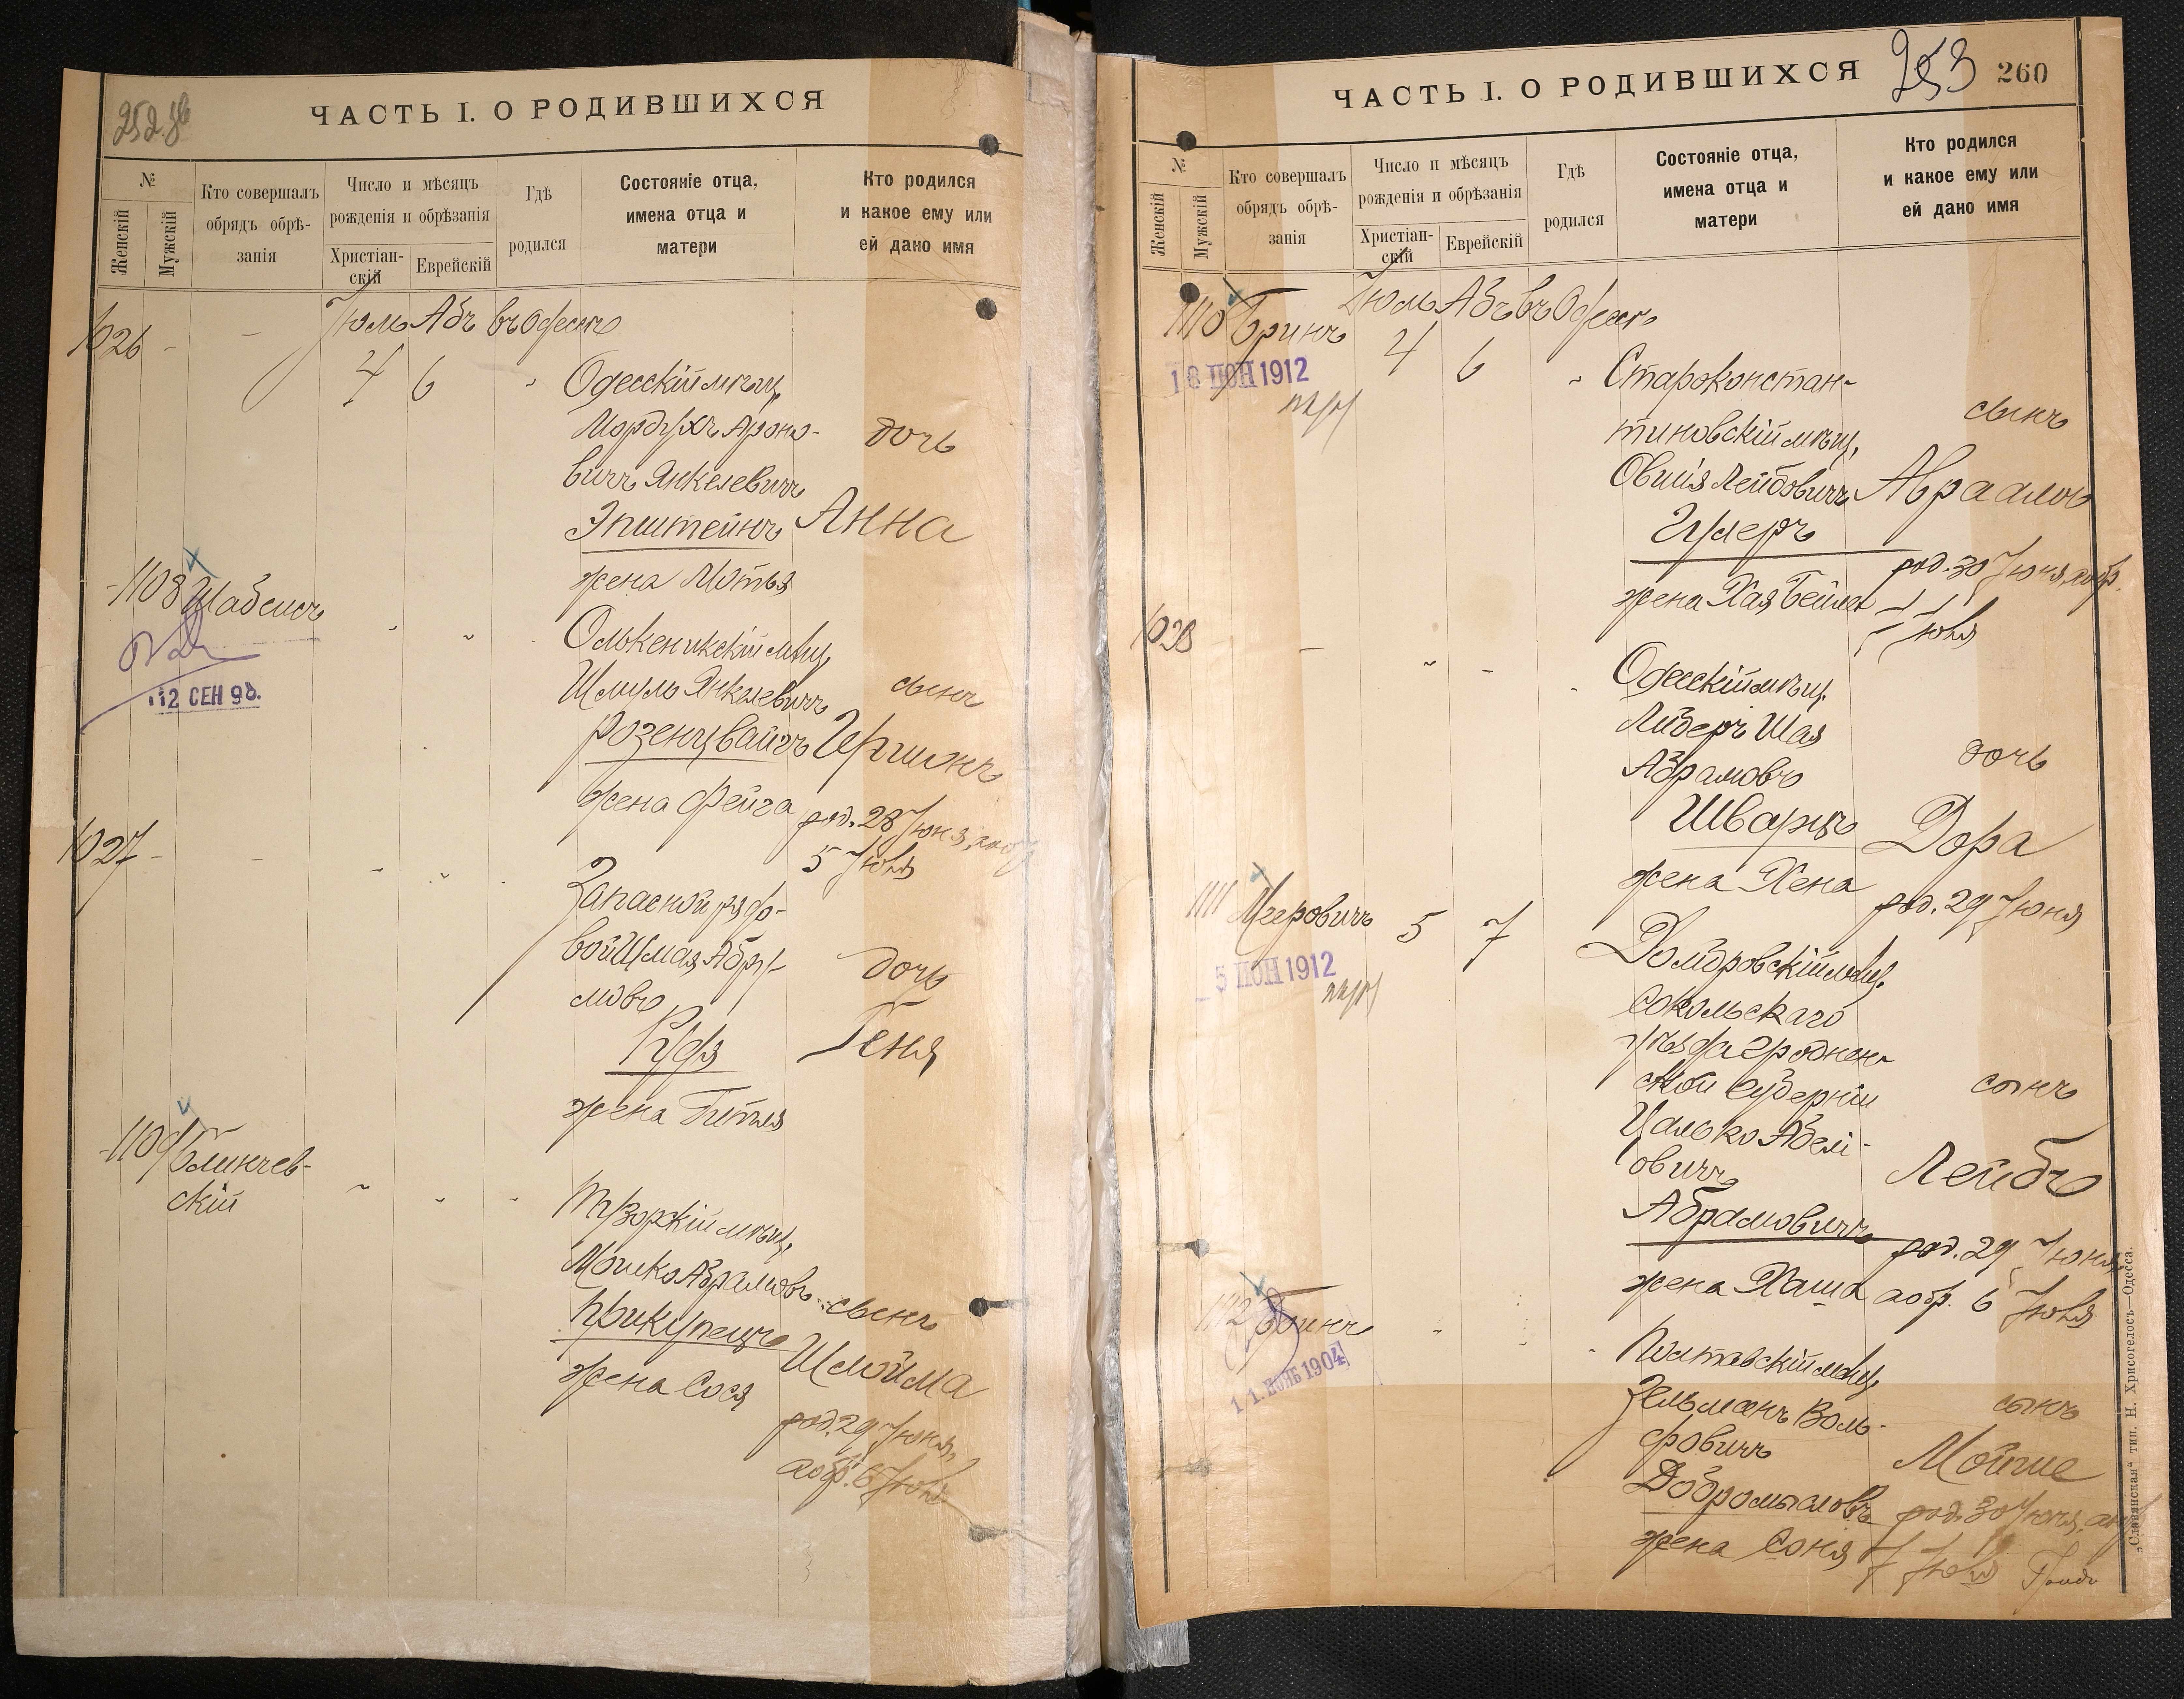 252 об
ЧАСТЬ I. О РОДИВШИХСЯ
№
Женскій
Мужскій
Кто совершалъ
обрядъ обрѣ-
занія
Число и мѣсяцъ
рожденія и обрѣзанія
Христіан-
скій
Еврейскій
Гдѣ
родился
Состояніе отца,
имена отца и
матери
Кто родился
и какое ему или
ей дано имя
Іюль Абъ въ Одессѣ
1026 - - 4 6 "
Одесскій мѣщ.
Мордухъ Ароно-
вичъ Янкелевичъ
Эпштейнъ
жена Мотья
дочь
Анна
1108 Шабсисъ
12 СЕН 98.
Олькеникскій мѣщ.
Шмуль Янкелевичъ
Розенцвайгъ
жена Фейга
сынъ
Гершонъ
род. 28 Іюня,
5 Іюля
1027 - -
Запасной рядо-
вой Шмая Абра-
мовъ
Руфя
жена Гитля
дочь
Геня
1109 Блинчев-
скій
мѣщ.
Мошко Абрамовъ
Прикупецъ
жена Сося
сынъ
Шлойма
род. 29 Іюня,
а обр. 6 Іюля
253 260
ЧАСТЬ I. О РОДИВШИХСЯ
№
Женскій
Мужскій
Кто совершалъ
обрядъ обрѣ-
занія
Число и мѣсяцъ
рожденія и обрѣзанія
Христіан-
скій
Еврейскій
Гдѣ
родился
Состояніе отца,
имена отца и
матери
Кто родился
и какое ему или
ей дано имя
Іюль Абъ въ Одессѣ
1110 Бринъ 4 6 "
1912
Староконстан-
тиновскій мѣщ.
Овшія Лейбовичъ
жена Хая Бейла
сынъ
Авраамъ
род. 30 Іюня, а обр.
Іюля
1028 -
Одесскій мѣщ.
Лейзеръ Шая
Абрамовъ
Шварцъ
жена Хена
дочь
Дора
род. 29 Іюня
1111 Мееровичъ 5 7
1912
мѣщ.
Сокольскаго
уѣзда Гроднен-
ской губерніи
Цалько Абелі-
овичъ
Абрамовичъ
жена Хаша
сынъ
Лейбъ
род. 29 Іюня
а обр. 6 Іюля
1112 Бринъ
1904
Полтавскій мѣщ.
Зельманъ Воль-
фовичъ
Добромысловъ
жена Соня
сынъ
Мойше
род. 30 Іюня, а обр.
7 Іюля
„Славянская“ тип. Н. Хрисогелосъ—Одесса.